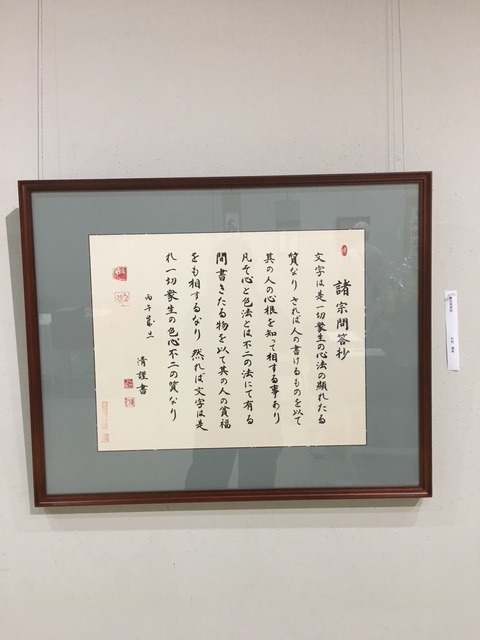 諸宗問答抄
文字は是一切衆生の心法の顯れたる
質なりされば人の書けるものを以て
其の人の心根を知って相する事あり
凡そ心と色法とは不二の法にて有る
間書きたる物を以て其の人の貧福
をも相するなり 然れば文字は是
れ一切衆生の色心不二の質なり
丙午歳旦
清謹書